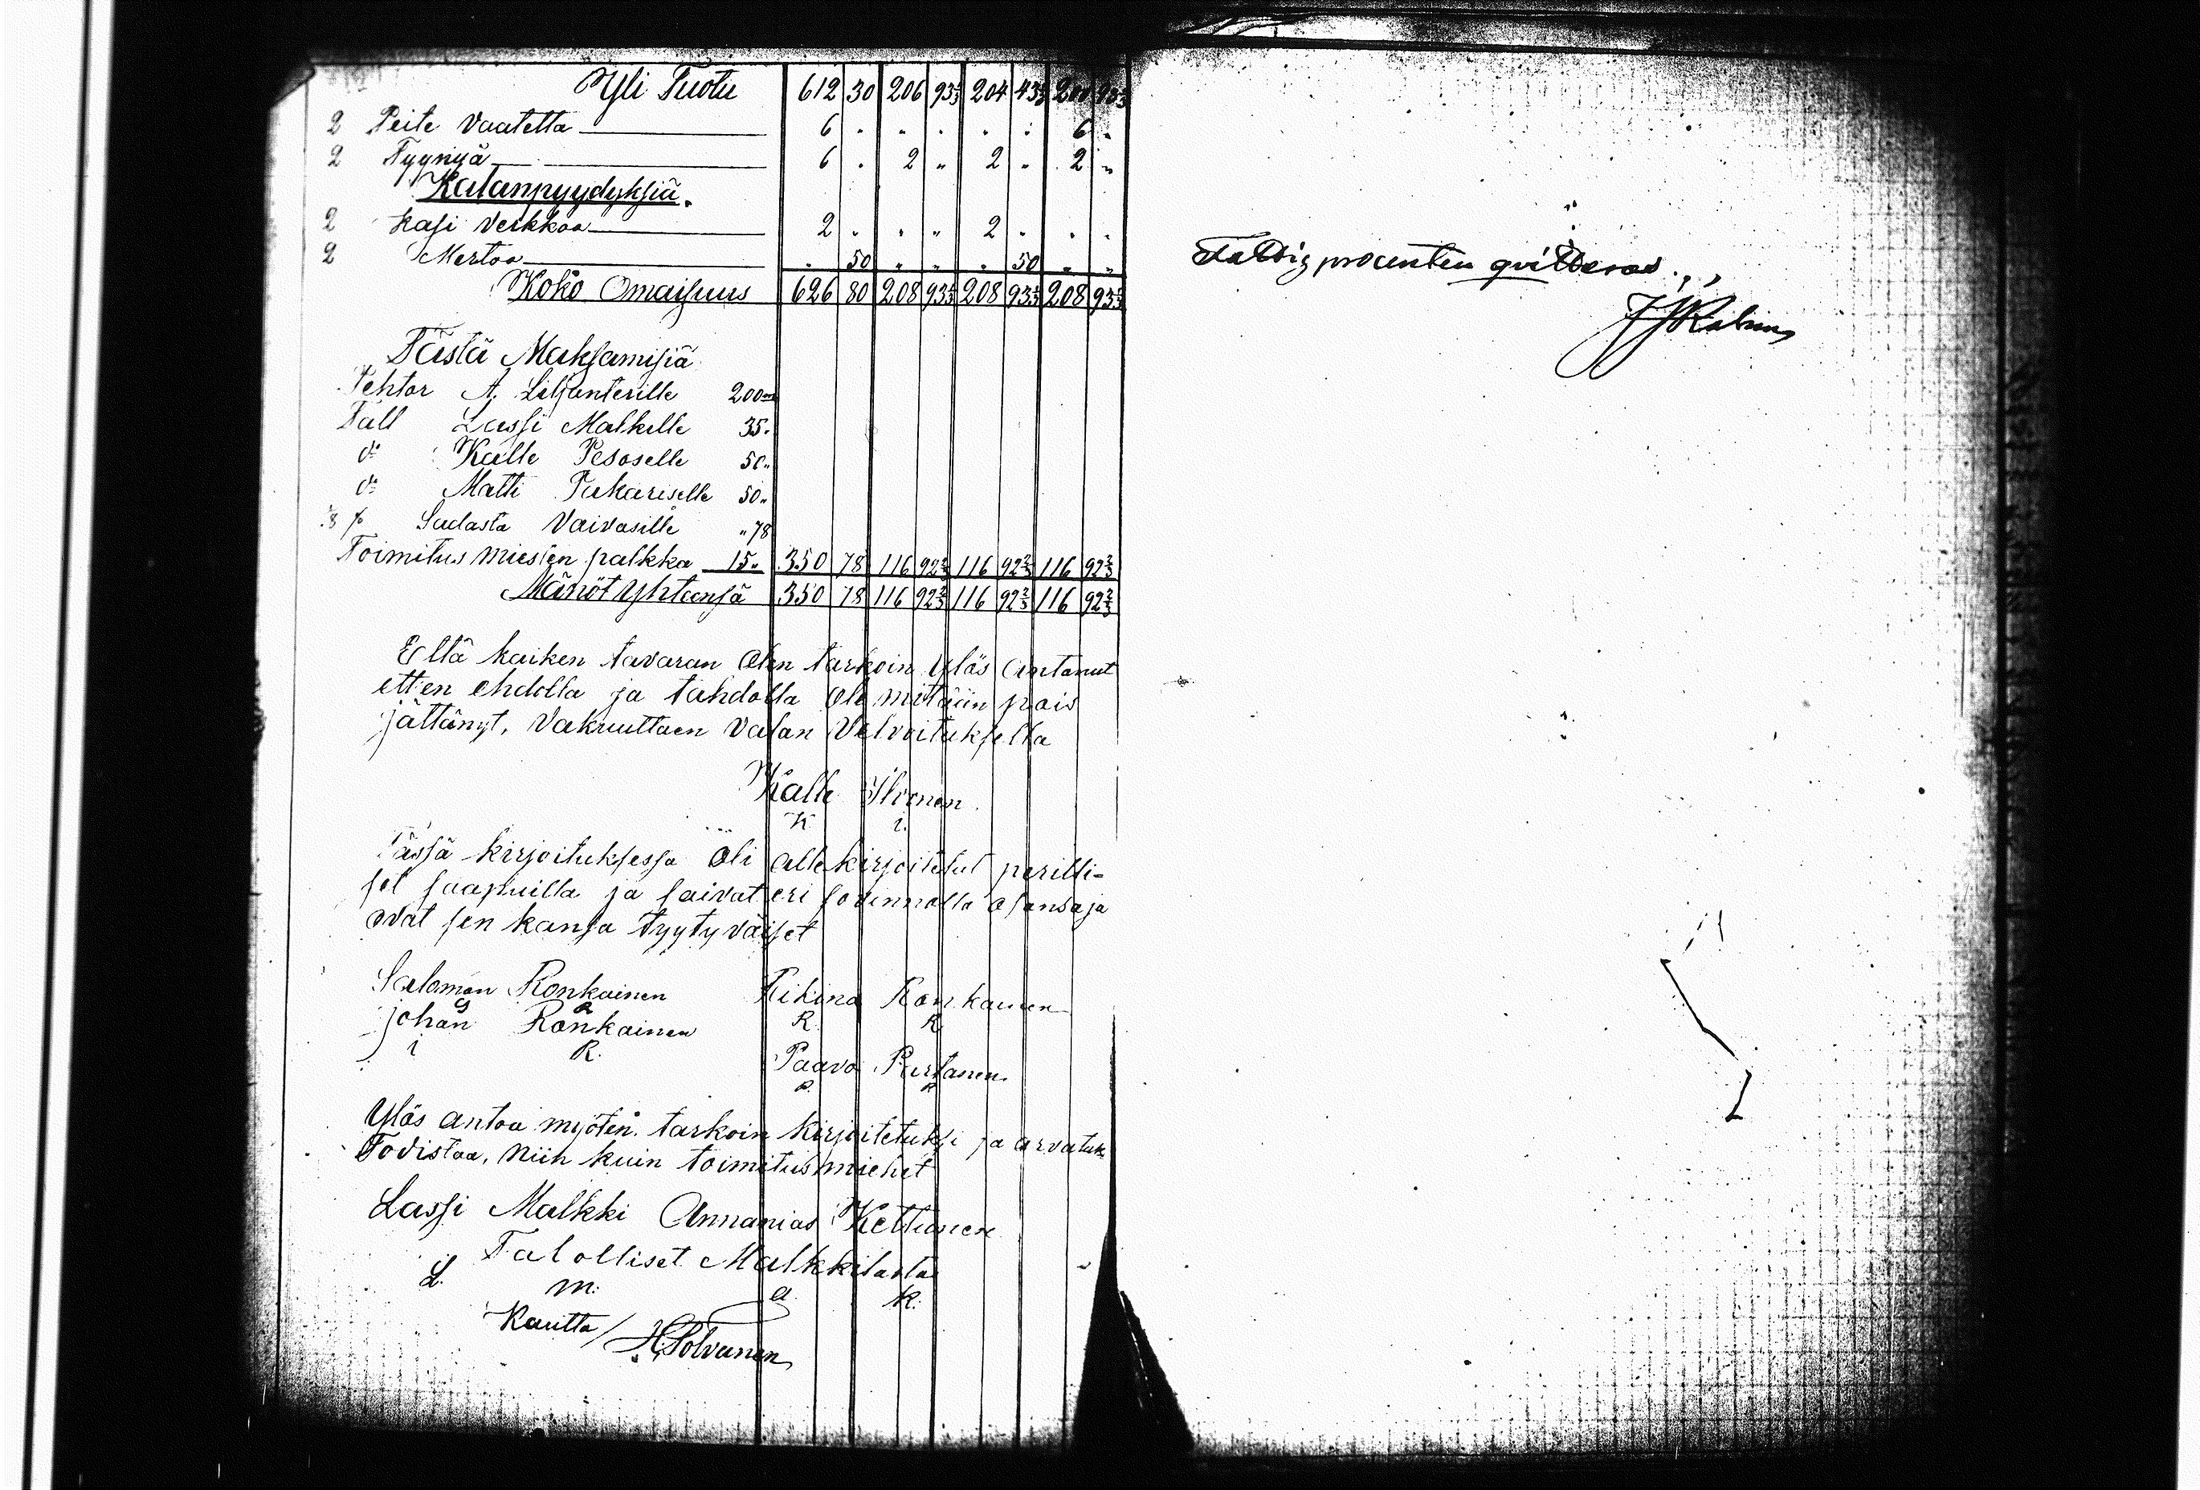 Yli Tuotu 612 30 206 93⅓ 204 43⅓ 200 93⅓
2 Peite Vaatetta 6 " " " " " 6 "
2 Tyynyä 6 " 2 " 2 " 2 "
Kalanpyydyksiä.
2 kasi Verkkoa 2 " " " 2 " " "
2 Mertaa " 50 " " " 50 " "
Koko Omaisuus 626 80 208 93⅓ 208 93⅓ 208 93⅓
Tästä Maksamisia
Tehtor A. Liljanterille 200
Tall Lassi Malkille 35"
do Kalle Pesoselle 50"
do Matti Pakariselle 50"
⅛ % Sadasta Vaivasille "78
Toimitus miesten palkka 15" 350 78 116 92⅔ 116 92⅔ 116 92⅔
Mänöt yhteensä 350 78 116 92⅔ 116 92⅔ 116 92⅔
Että kaiken tavaran Olen tarkoin Ylös antanut
etten ehdolla ja tahdolla Ole mitään pois
jättänyt, Vakuuttaen Valan Velvoituksella
Kalle Ilvonen.
K. i.
Tässä kirjoituksessa Oli allekirjoitetut perilli=
set saapuilla ja saivat eri sovinnolla osansa ja
ovat sen kansa tyytyväiset
Salomon Ronkainen Rikina Ronkainen
S R R. R
Johan Ronkainen
i R.
Paavo Partanen
P. P.
Ylös antoa myöten tarkoin kirjoitetuksi ja arvatuk
Todistaa, niin kuin toimitus miehet
Lassi Malkki Annanias Kettunen
Talolliset Malkkilasta
L. m. a. K.
Kautta / H Polvanen
Fattig procenten qvitteras.,,